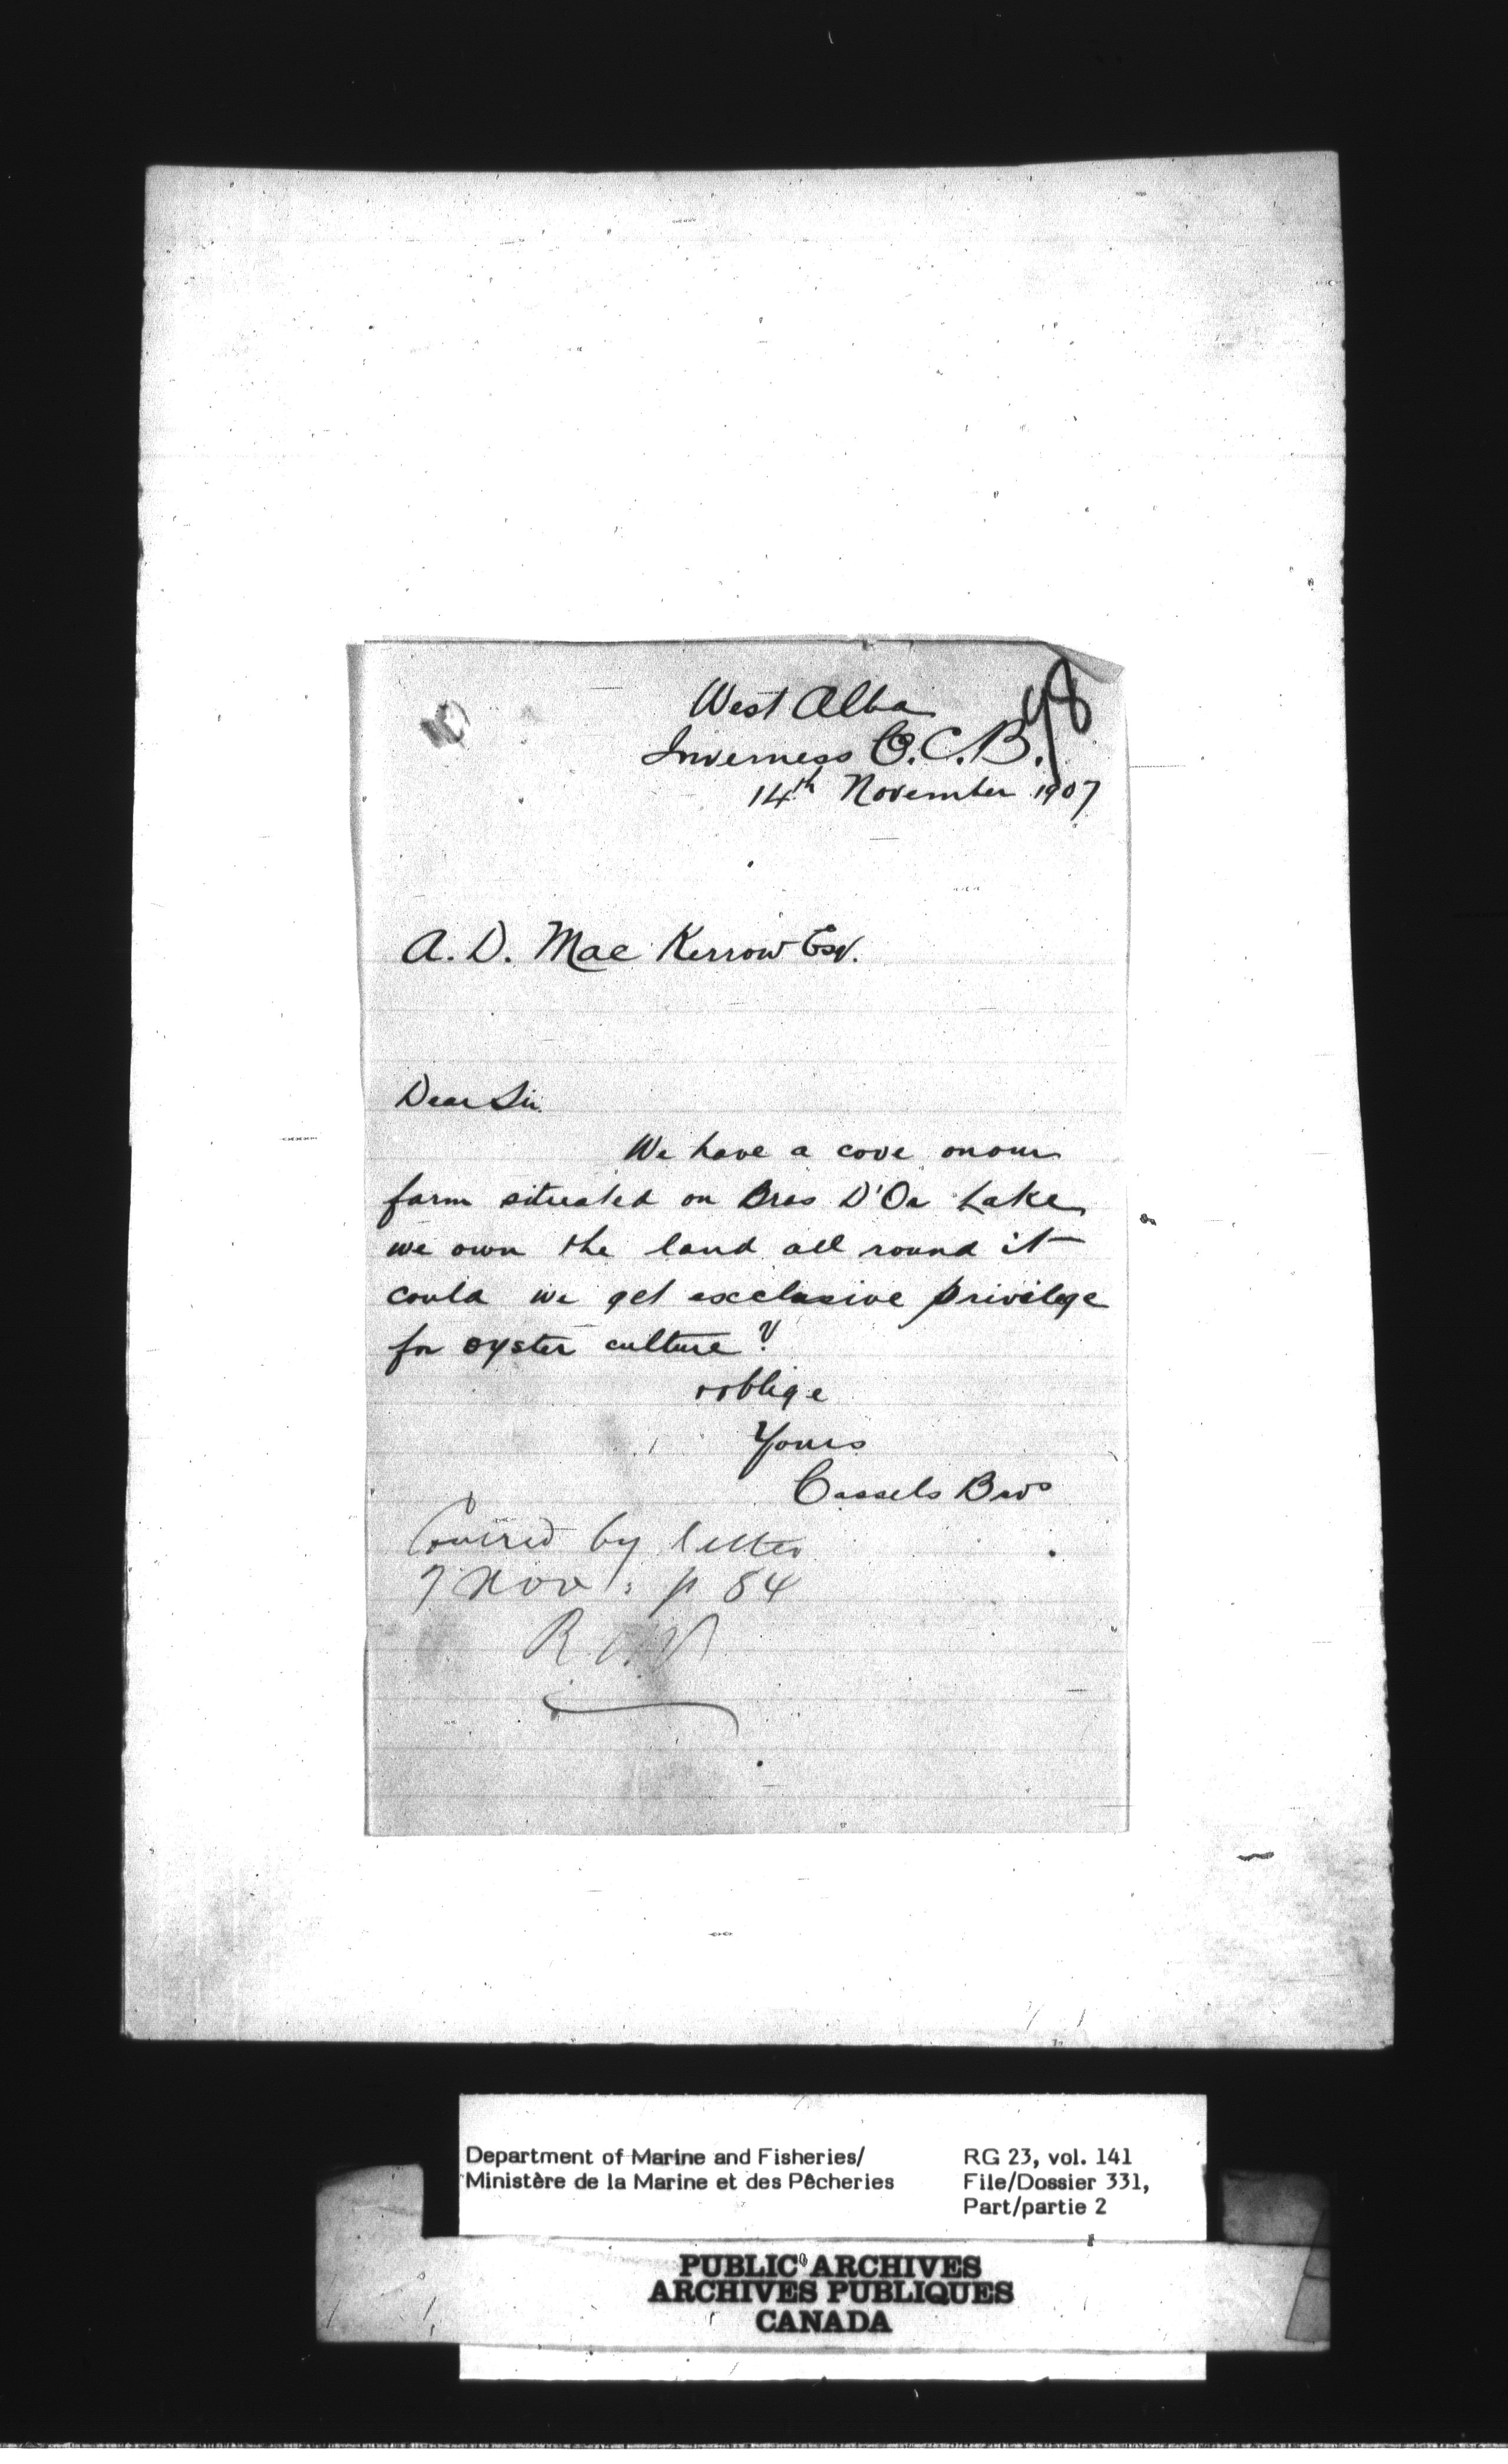 48
West Alba
Inverness Co. C.B.
14th November 1907
A. D. Mac Kerrow Esq.
Dear Sir
We have a cove on our
farm situated on Bras D'Or Lake
we own the land all round it
could we get exclusive privilege
for oyster culture?
& oblige
Yours
Cassels Bros
Covered by letter
7 Nov: p 84
Department of Marine and Fisheries/
Ministère de la Marine et des Pêcheries
RG 23, vol. 141
File/Dossier 331,
Part/partie 2
PUBLIC ARCHIVES
ARCHIVES PUBLIQUES
CANADA